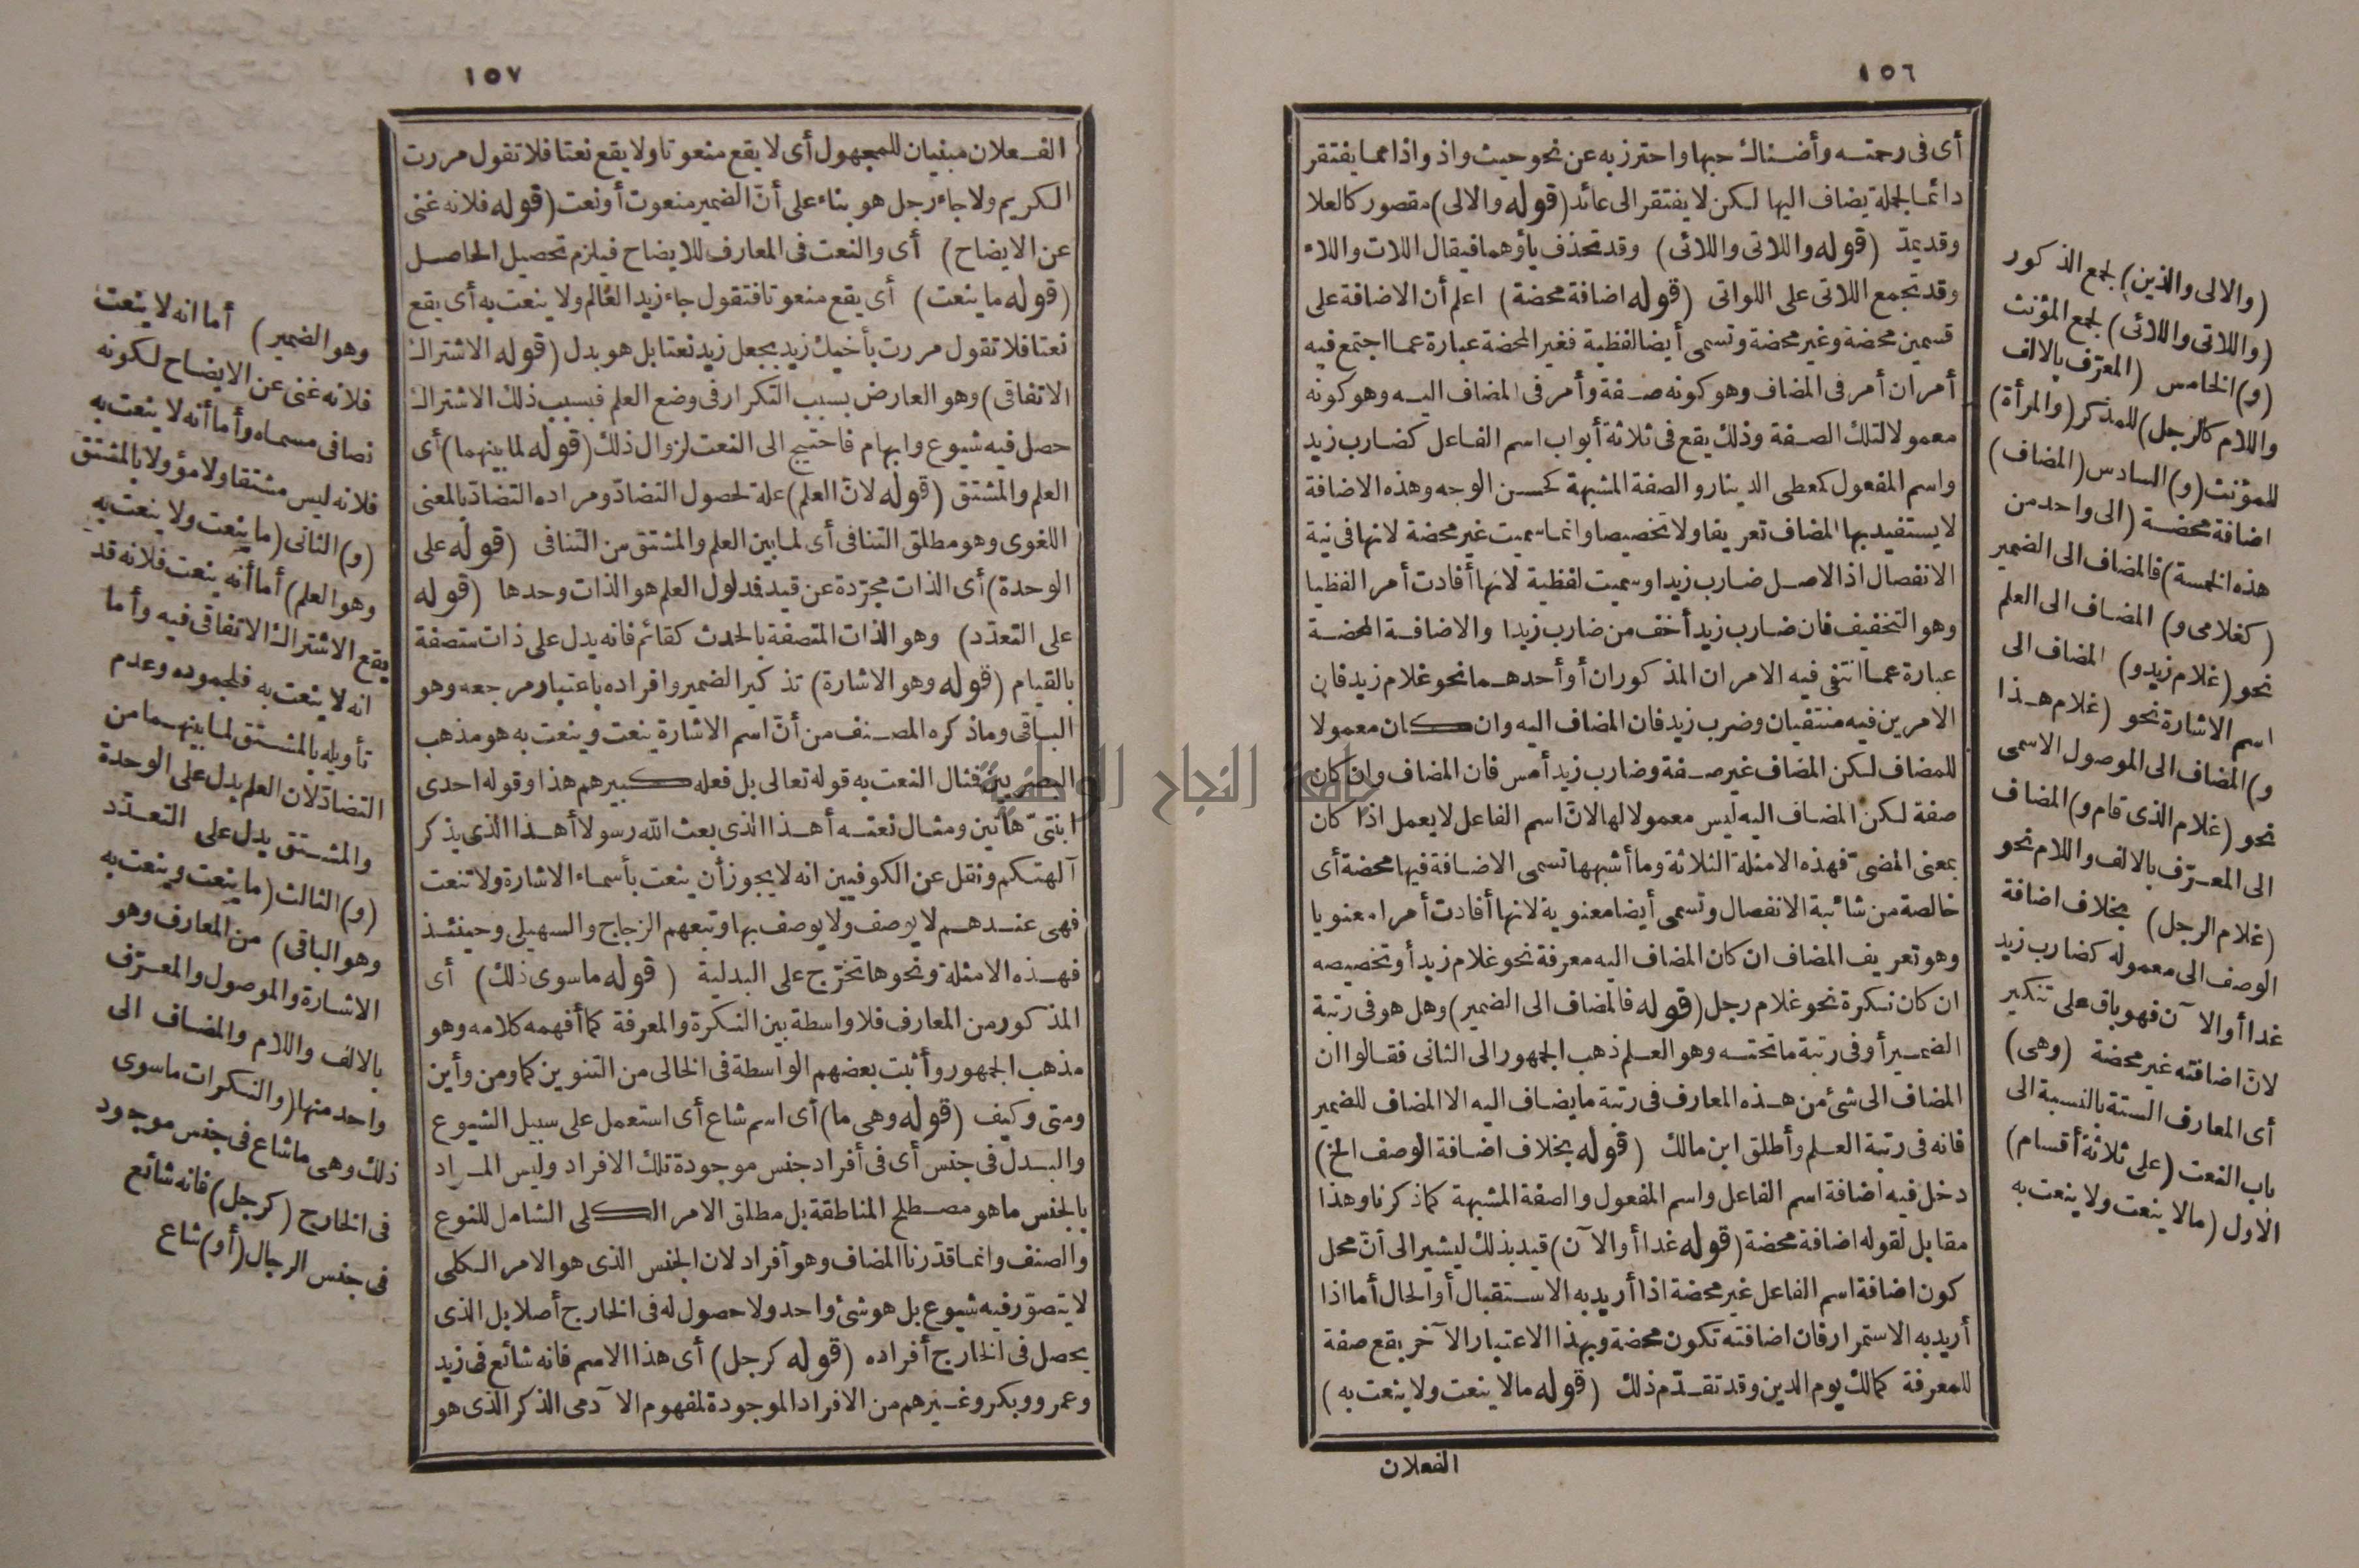 ١٥٦
أى فى رحمته وأضناك حبها واحترز به عن نحو حيث واذ واذا مما يفتقر
دائما لجملة يضاف اليها لكن لا يفتقر الى عائد (قوله والالى) مقصور كالعلا
وقد يمدّ (قوله واللاتى واللائى) وقد تحذف ياؤهما فيقال اللات واللاء
وقد تجمع اللاتى على اللواتى (قوله اضافة محضة) اعلم أن الاضافة على
قسمين محضة وغير محضة وتسمى أيضا لفظية فغير المحضة عبارة عما اجتمع فيه
أمران أمر فى المضاف وهو كونه صفة وأمر فى المضاف اليه وهو كونه
معمولا لتلك الصفة وذلك يقع فى ثلاثة أبواب اسم الفاعل كضارب زيد
واسم المفعول كمعطى الدينار والصفة المشبهة كحسن الوجه وهذه الاضافة
لا يستفيد بها المضاف تعريفا ولا تخصيصا وانما سميت غير محضة لانها فى نية
الانفصال اذ الاصل ضارب زيدا وسميت لفظية لانها أفادت أمرا لفظيا
وهو التخفيف فان ضارب زيد أخف من ضارب زيدا والاضافة المحضة
عبارة عما انتفى فيه الامران المذكوران أو أحدهما نحو غلام زيد فان
الامرين فيه منتفيان وضرب زيد فان المضاف اليه وان كان معمولا
للمضاف لكن المضاف غير صفة وضارب زيد أمس فان المضاف وان كان
صفة لكن المضاف اليه ليس معمولا لها لانّ اسم الفاعل لا يعمل اذا كان
بمعنى المضىّ فهذه الامثلة الثلاثة وما أشبهها تسمى الاضافة فيها محضة أى
خالصة من شائبة الانفصال وتسمى أيضا معنوية لانها أفادت أمرا معنويا
وهو تعريف المضاف ان كان المضاف اليه معرفة نحو غلام زيد أو تخصيصه
ان كان نكرة نحو غلام رجل (قوله فالمضاف الى الضمير) وهل هو فى رتبة
الضمير أو فى رتبة ما تحته وهو العلم ذهب الجمهور الى الثانى فقالوا ان
المضاف الى شئ من هذه المعارف فى رتبة ما يضاف اليه الا المضاف للضمير
فانه فى رتبة العلم وأطلق ابن مالك (قوله بخلاف اضافة الوصف الخ)
دخل فيه اضافة اسم الفاعل واسم المفعول والصفة المشبهة كما ذكرنا وهذا
مقابل لقوله اضافة محضة (قوله غدا أو الآن) قيد بذلك ليشير الى أنّ محل
كون اضافة اسم الفاعل غير محضة اذا أريد به الاستقبال أو الحال أما اذا
أريد به الاستمرار فان اضافته تكون محضة وبهذا الاعتبار الآخر يقع صفة
للمعرفة كمالك يوم الدين وقد تقدّم ذلك (قوله ما لا ينعت ولا ينعت به)
الفعلان
(والالى والذين) لجمع الذكور
(واللاتى واللائى) لجمع المؤنث
(و) الخامس (المعرّف بالالف
واللام كالرجل) للمذكر (والمرأة)
للمؤنث (و) السادس (المضاف)
اضافة محضة (الى واحد من
هذه الخمسة) فالمضاف الى الضمير
(كغلامى و) المضاف الى العلم
نحو (غلام زيد و) المضاف الى
اسم الاشارة نحو (غلام هذا
و) المضاف الى الموصول الاسمى
نحو (غلام الذى قام و) المضاف
الى المعرّف بالالف واللام نحو
(غلام الرجل) بخلاف اضافة
الوصف الى معموله كضارب زيد
غدا أو الآن فهو باق على تنكير
لانّ اضافته غير محضة (وهى)
أى المعارف الستة بالنسبة الى
باب النعت (على ثلاثة أقسام)
الاول (ما لا ينعت ولا ينعت به
١٥٧
الفعلان مبنيان للمجهول أى لا يقع منعوتا ولا يقع نعتا فلا تقول مررت
الكريم ولا جاء رجل هو بناء على أنّ الضمير منعوت أو نعت (قوله فلانه غنى
عن الايضاح) أى والنعت فى المعارف للايضاح فيلزم تحصيل الحاصل
(قوله ما ينعت) أى يقع منعوتا فتقول جاء زيد العالم ولا ينعت به أى يقع
نعتا فلا تقول مررت بأخيك زيد بجعل زيد نعتا بل هو بدل (قوله الاشتراك
الاتفاقى) وهو العارض بسبب التكرار فى وضع العلم فبسبب ذلك الاشتراك
حصل فيه شيوع وابهام فاحتيج الى النعت لزوال ذلك (قوله لما بينهما) أى
العلم والمشتق (قوله لانّ العلم) علة لحصول التضادّ ومراده التضادّ بالمعنى
اللغوى وهو مطلق التنافى أى لما بين العلم والمشتق من التنافى (قوله على
الوحدة) أى الذات مجرّدة عن قيد فدلول العلم هو الذات وحدها (قوله
على التعدّد) وهو الذات المتصفة بالحدث كقائم فانه يدل على ذات متصفة
بالقيام (قوله وهو الاشارة) تذكير الضمير وافراده باعتبار مرجعه وهو
الباقى وما ذكره المصنف من أنّ اسم الاشارة ينعت وينعت به هو مذهب
البصريين فمثال النعت به قوله تعالى بل فعله كبيرهم هذا وقوله احدى
ابنتىّ هاتين ومثال نعته أهذا الذى بعث الله رسولا أهذا الذى يذكر
آلهتكم ونقل عن الكوفيين انه لا يجوز أن ينعت بأسماء الاشارة ولا تنعت
فهى عندهم لا يوصف ولا يوصف بها وتبعهم الزجاج والسهيلى وحينئذ
فهذه الامثلة ونحوها تخرّج على البدلية (قوله ما سوى ذلك) أى
المذكور من المعارف فلا واسطة بين النكرة والمعرفة كما أفهمه كلامه وهو
مذهب الجمهور وأثبت بعضهم الواسطة فى الخالى من التنوين كما ومن وأين
ومتى وكيف (قوله وهى ما) أى اسم شاع أى استعمل على سبيل الشيوع
والبدل فى جنس أى فى أفراد جنس موجودة تلك الافراد وليس المراد
بالجنس ما هو مصطلح المناطقة بل مطلق الامر الكلى الشامل للنوع
والصنف وانما قدّرنا المضاف وهو أفراد لان الجنس الذى هو الامر الكلى
لا يتصوّر فيه شيوع بل هو شئ واحد ولا حصول له فى الخارج أصلا بل الذى
يحصل فى الخارج أفراده (قوله كرجل) أى هذا الاسم فانه شائع فى زيد
وعمرو وبكر وغيرهم من الافراد الموجودة لمفهوم الآدمى الذكر الذى هو
وهو الضمير) أما انه لا ينعت
فلانه غنى عن الايضاح لكونه
نصا فى مسماه وأما أنه لا ينعت به
فلانه ليس مشتقا ولا مؤولا بالمشتق
(و) الثانى (ما ينعت ولا ينعت به
وهو العلم) أما أنه ينعت فلانه قد
يقع الاشتراك الاتفاقى فيه وأما
انه لا ينعت به فلجموده وعدم
تأويله بالمشتق لما بينهما من
التضادّ لان العلم يدل على الوحدة
والمشتق يدل على التعدّد
(و) الثالث (ما ينعت وينعت به
وهو الباقى) من المعارف وهو
الاشارة والموصول والمعرّف
بالالف واللام والمضاف الى
واحد منها (والنكرات ما سوى
ذلك وهى ما شاع فى جنس موجود
فى الخارج (كرجل) فانه شائع
فى جنس الرجال (أو) شاع
جامعة النجاح الوطنية